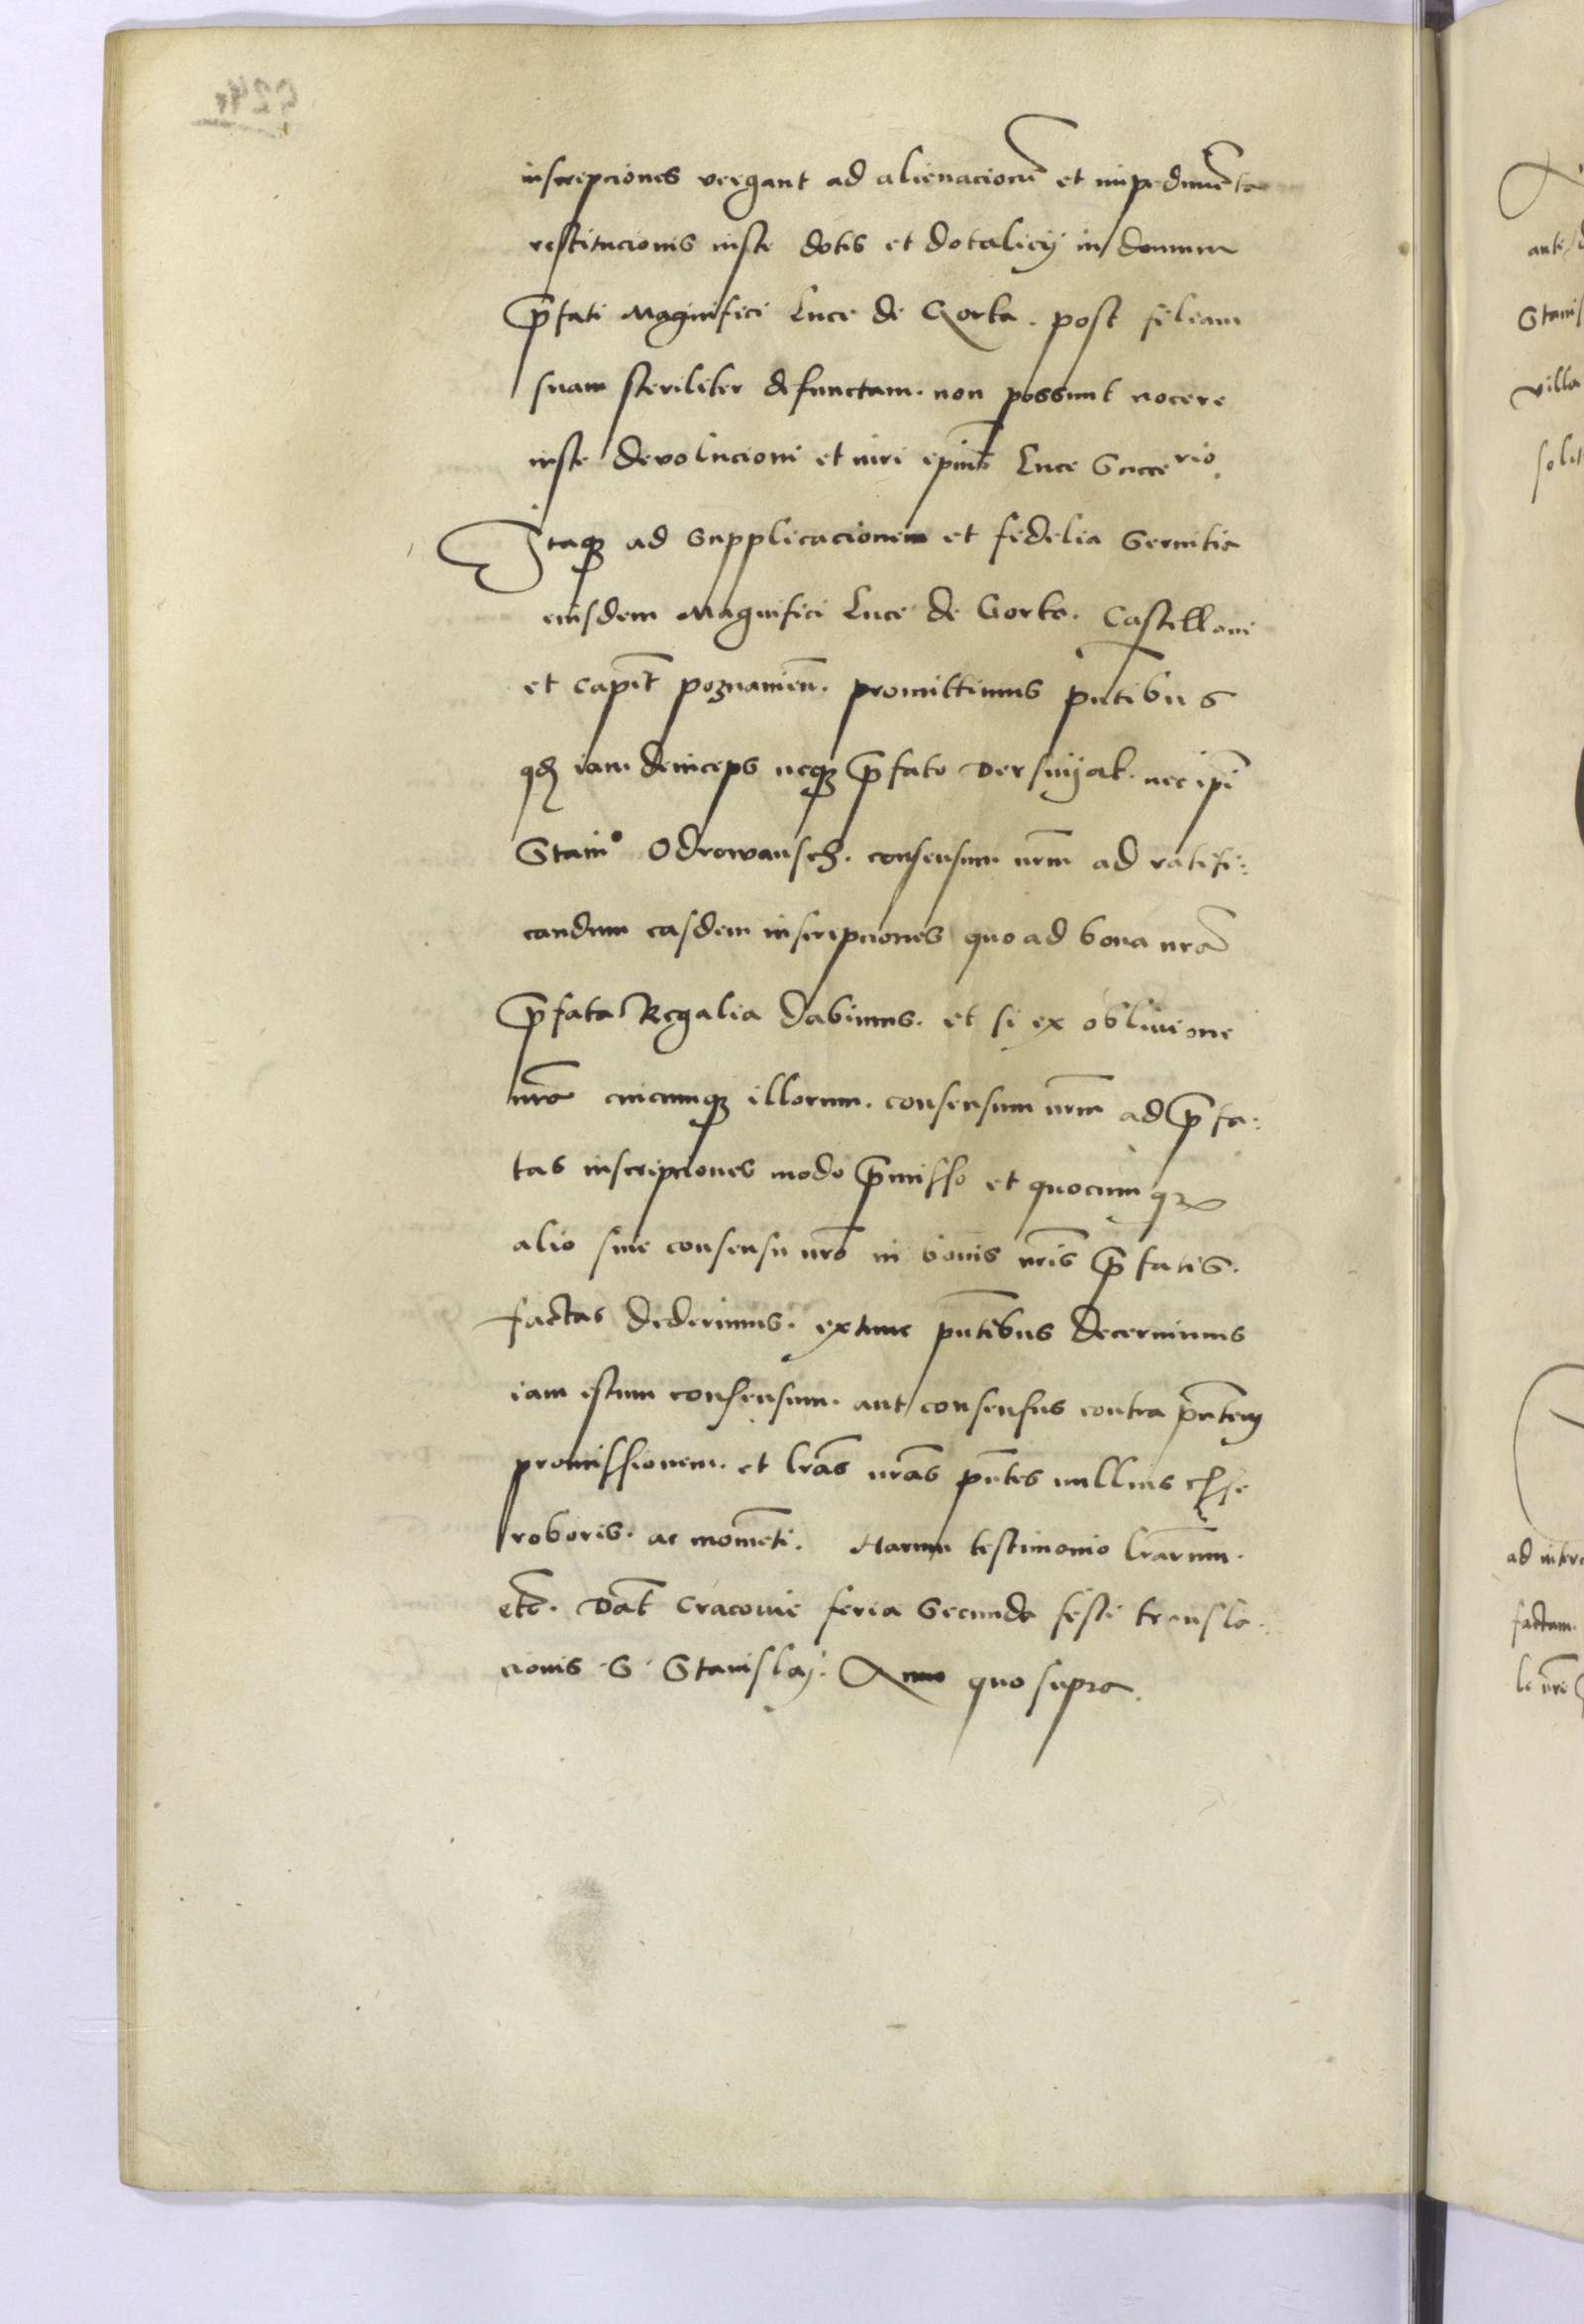 inscripciones vergant ad alienacionẽ et impedimẽta
restitucionis iuste dotis et dotalicij in domum
p̃fati Magnifici Luce de Gorka. post filiam
suam steriliter defunctam. non possunt nocere
iuste devolucioni et iuri Luce
Itaqȝ ad Supplicacionem et fidelia Servitia
eiusdem Magnifici Luce de Gorka. Castellani
et Capit̃ poznanieñ. promittimus pñtibus
qđ iam deinceps neqȝ p̃fato Dersnyak. nec ipi
Stanᵒ Odrowansch. consensum nrm̃ ad ratifi:
candum easdem inscripciones quo ad bona nrã
p̃fata Regalia dabimus. et si ex oblivione
nrã cuicumqȝ illorum. consensum nrm̃ ad p̃fa:
tas inscripciones modo p̃misso et quocumqȝ
alio sine consensu nrõ in bonis nrĩs p̃fatis.
factas dederimus. extunc pñtibus decernimus
iam istum consensum. aut consensus contra pñtem
promissionem. et lrãs nrãs pñtes nullius esse
roboris. ac momẽti. Harum testimonio lrãrum.
etc̃. Dat̃ Cracovie feria Secunda festi transla:
cionis S. Stanislaj. Anno quo supra.